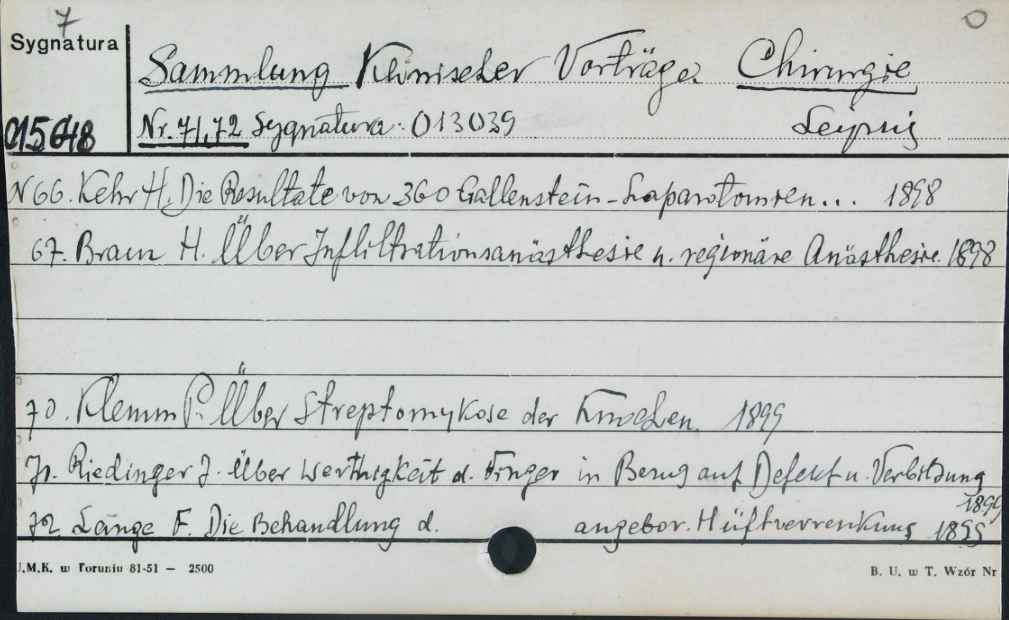 7
Sygnatura
015648
Sammlung Klinischer Vorträge Chirurgie
Nr. 71,72 Sygnatura: 013039 Leipzig
N 66. Kehr H. Die Resultate von 360 Gallenstein-Laparotomien... 1898
67. Braun H. Über Infliltrationsanästhesie u. regionäre Anästhesie. 1898
70. Klemm P. Über Streptomykose der Knochen. 1899
71. Riedinger J. Über Werthigkeit d. Finger in Bezug auf Defekt u. Verbildung
1899
72 Lange F. Die Behandlung d. angebor. Hüftverrenkung 1899
U.M.K. w Toruniu 81-51 — 2500 B. U. w T. Wzór Nr